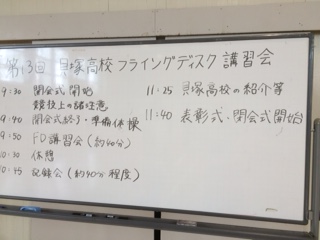 第13回 貝塚高校フライングディスク講習会
9:30 開会式 開始
競技上の諸注意
9:40 開会式終了・準備体操
9:50 FD講習会(約40分)
10:30 休憩
10:45 記録会(約40分程度)
11:25 貝塚高校の紹介等
11:40 表彰式・閉会式開始